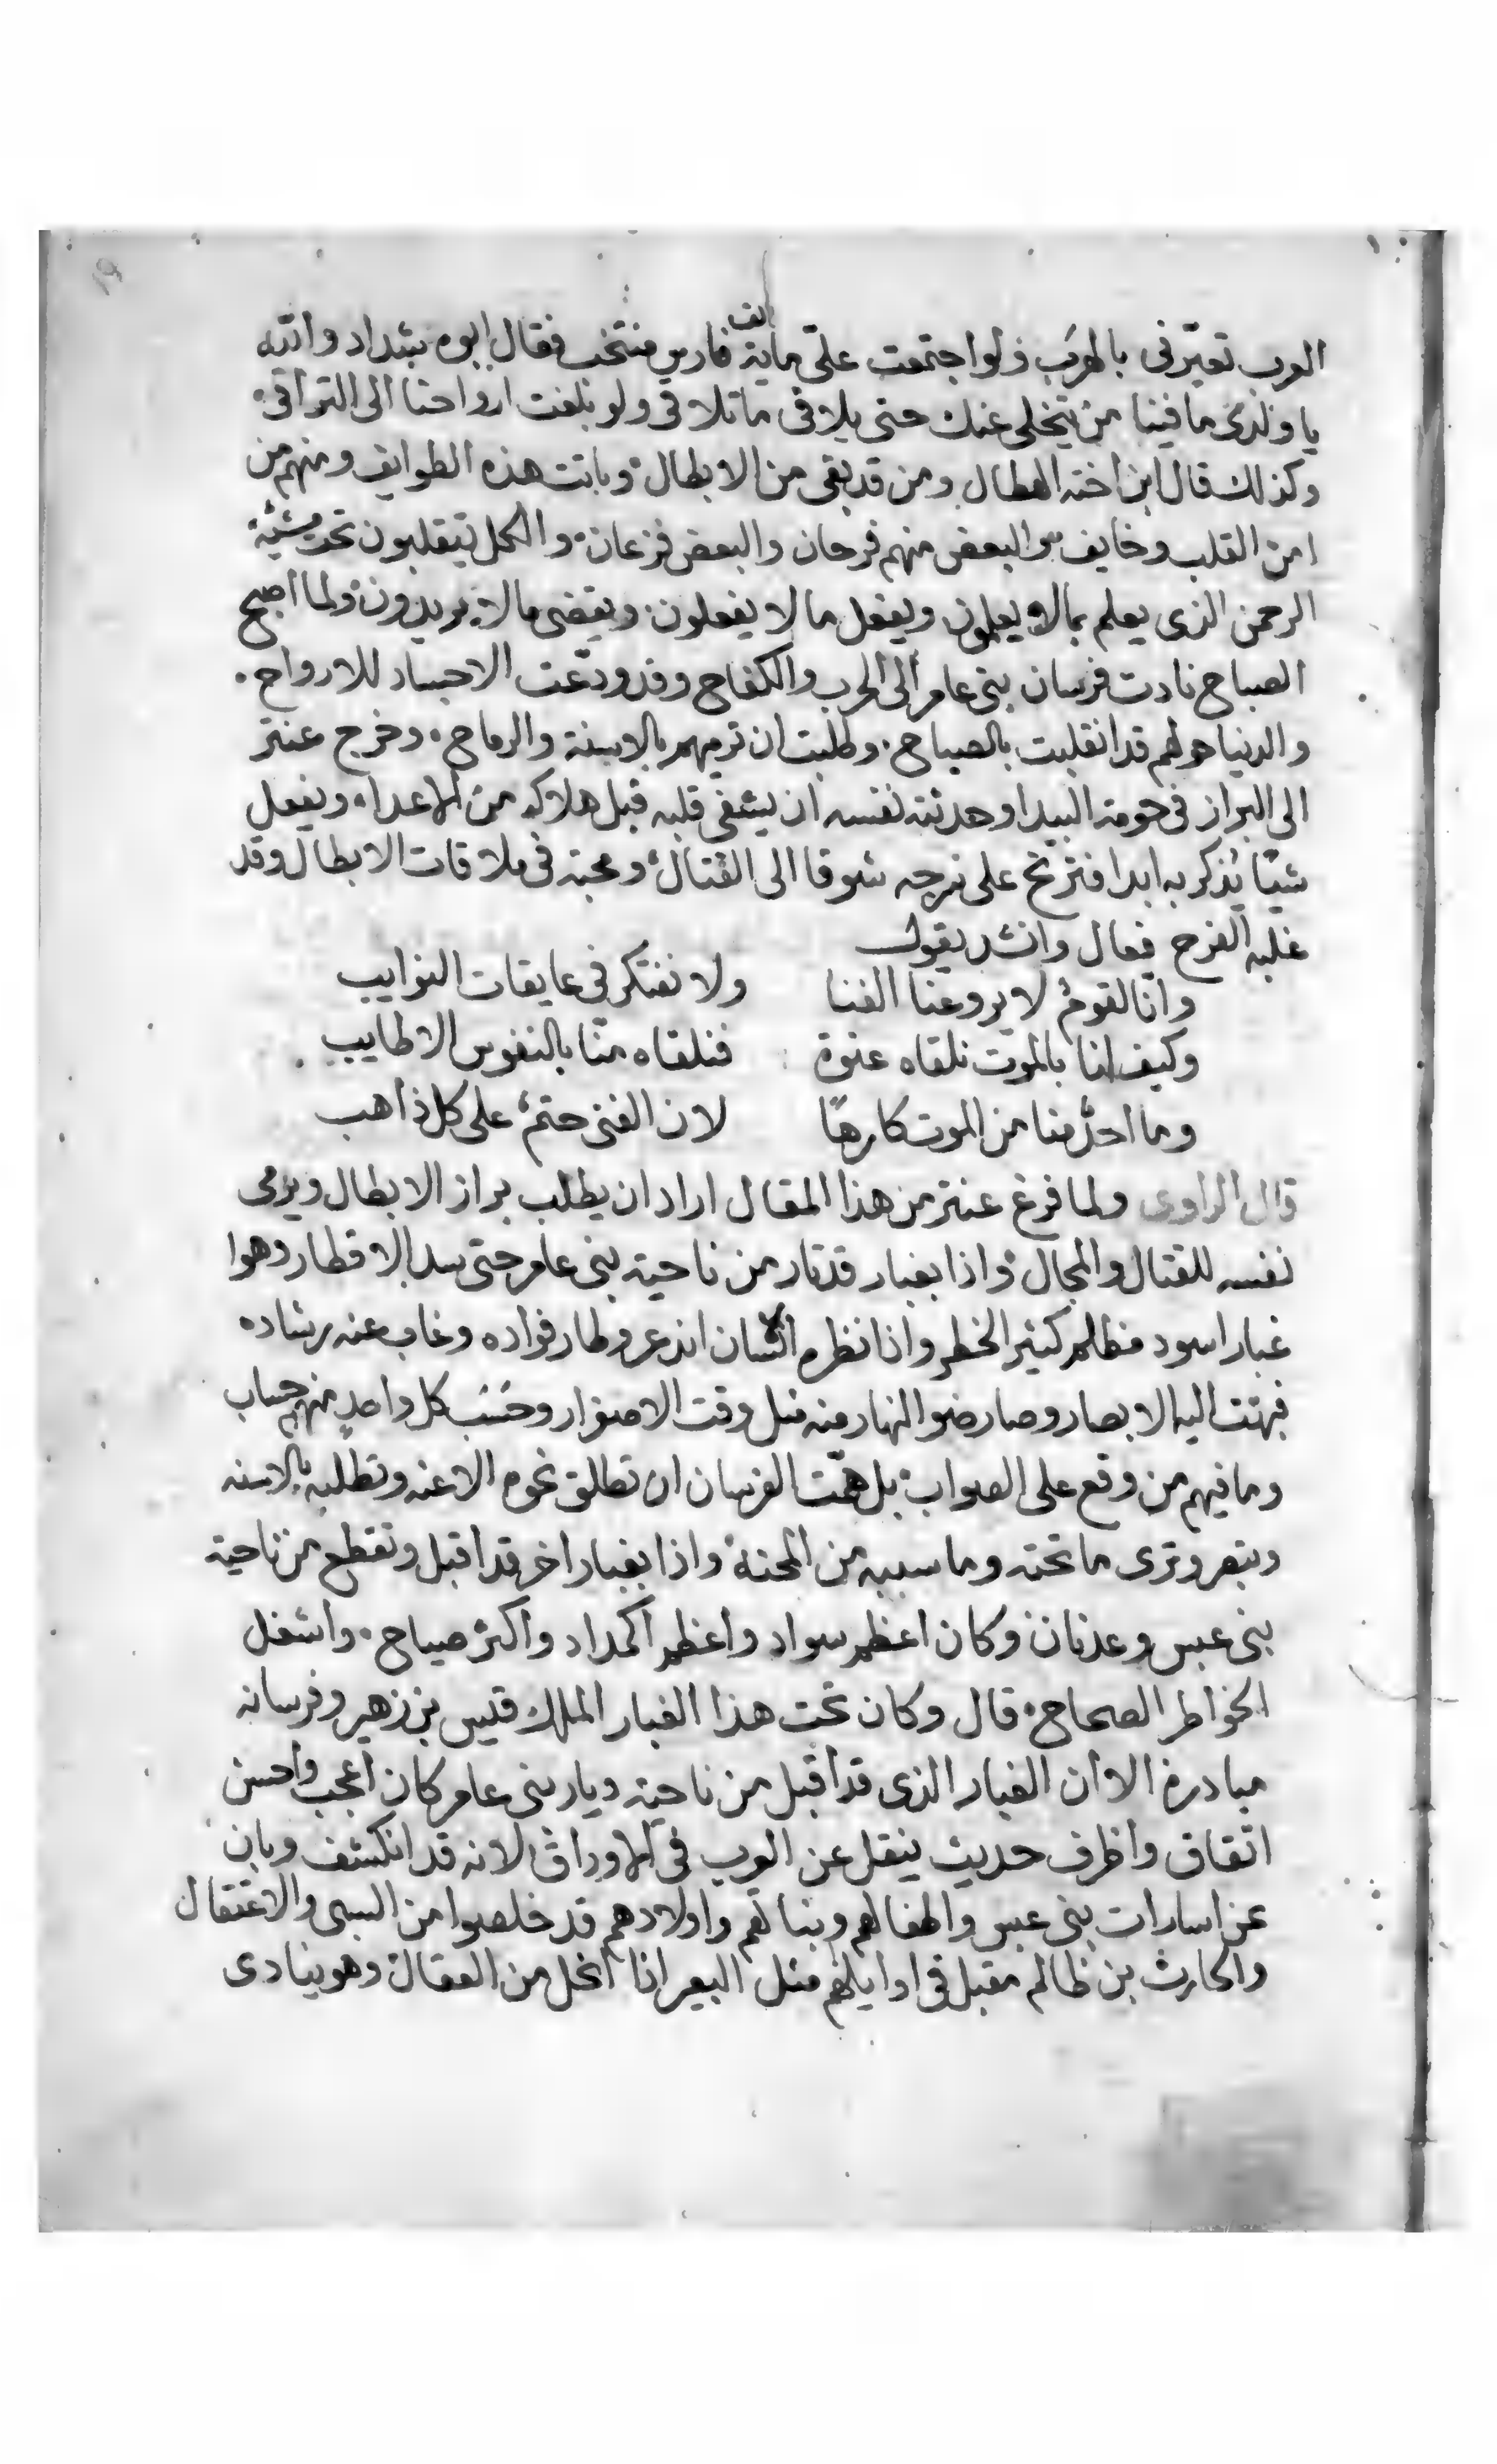 العرب تعيّرنى بالهرب ولو اجتمعت علىّ ماية الف فارس منتخب فقال ابوه شداد والله
يا ولدى ما فينا من يتخلى عنك حتى يلاقى ما تلاقى ولو بلغت ارواحنا الى التراقى
وكذلك قال ابن اخته الهطال ومن قد بقى من الابطال وباتت هذه الطوايف ومنهم من
امن القلب وخايف والبعض منهم فرحان والبعض فزعان والكل يتقلبون تحت مشيّة
الرحمن الذى يعلم بما لا يعلمون ويفعل ما لا يفعلون ويقضى ما لا يريدون ولما اصبح
الصباح نادت فرسان بنى عامر الى الحرب والكفاح وقد ودّعت الاجساد للارواح
والدنيا حولهم قد انقلبت بالصياح وطلبت ان ترميهم بالاسنة والرماح وخرج عنتر
الى البراز فى حومة البيدا وحدثته نفسه ان يشفى قلبه قبل هلاكه من الاعداء ويفعل
شيّا يذكر به ابدا فترنح على سرجه شوقا الى القتال ومحبة فى ملاقات الابطال وقد
غلبه الفرح فعال وانشد يقول
وانا لقومٌ لا يروعنا الفنا ولا نفتكر فى عايقات النوايب
وكيف لنا بالموت نلقاه عنوة فنلقاه منّا بالنفوس الاطايب
وما احدٌ منا من الموت كارهًا لان الفنى حتمٌ على كل ذاهب
قال الراوى ولما فرغ عنتر من هذا المقال اراد ان يطلب براز الابطال ويرمى
نفسه للقتال والمجال واذا بغبار قد ثار من ناحية بنى عامر حتى سد الاقطار وهوا
غبار اسود مظلم كثير الخطر واذا نظره الانسان اندعر وطار فواده وغاب عنه رشاده
فبهتت اليه الابصار وصار ضو النهار منه مثل وقت الاصفرار وحَسَب كل واحدٍ منهم حساب
وما فيهم من وقع على الصواب بل همّت الفرسان ان تطلق نحوه الاعنه وتطلبه بالاسنه
وتبصر وترى ما تحته وما سببه من المحنة واذا بغبار اخر قد اقبل وتقطع من ناحية
بنى عبس وعدنان وكان اعظم سواد واعظم اكمداد واكثر صياح واشغل
الخواطر الصحاح قال وكان تحت هذا الغبار الملك قيس بن زهير وفرسانه
مبادرة الا ان الغبار الذى قد اقبل من ناحية ديار بنى عامر كان اعجب واحسن
اتفاق واظرف حديث ينقل عن العرب فى الاوراق لانه قد انكشف وبان
عن اسارات بنى عبس واطفالهم وبناتهم واولادهم قد خلصوا من السبى والاعتقال
والحارث بن ظالم مقبل فى اوايلهم مثل البعير اذا انحل من العقال وهو ينادى